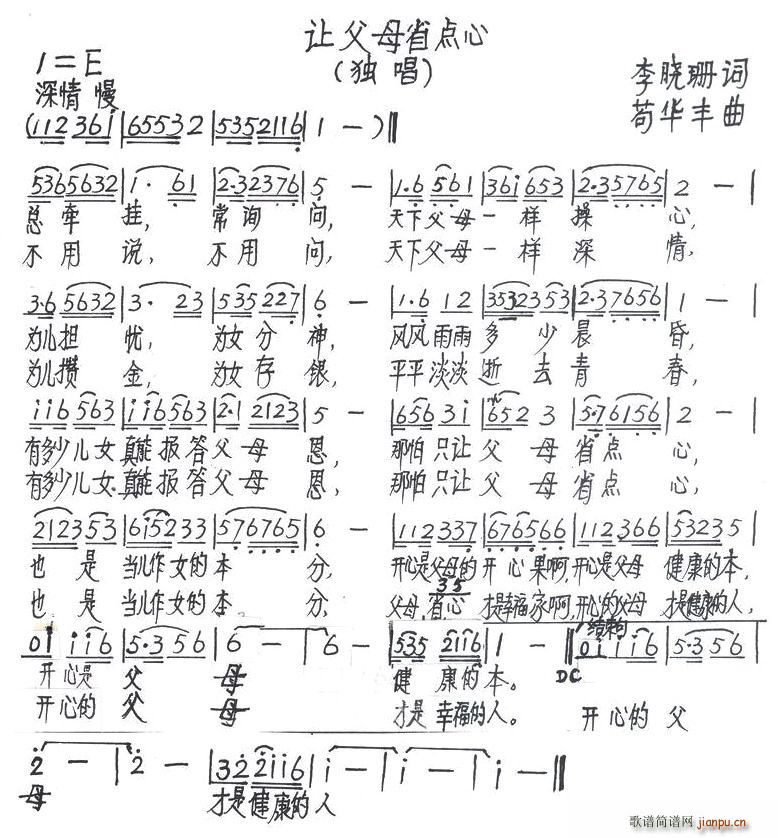 让父母省点心
(独唱)
1=E
深情 慢
李晓珊词
苟华丰曲
(112 36i|65532|5352116|1 — )‖
5365632|1· 61|2·32376|5 — |1·6 561|36i 653|2·35765|2 — |
总牵挂, 常询问, 天下父母一样操心,
不用说, 不用问, 天下父母一样深情,
3·6 5632|3· 23|535227|6 — |1·6 12|3532353|2·37656|1 — |
为儿担忧, 为女分神, 风风雨雨多少晨昏,
为儿攒金, 为女存银, 平平淡淡逝去青春,
ii6 563|ii6563|2·1 2123|5 — |6563i|6523|5·76156|2 — |
有多少儿女真能报答父母恩, 那怕只让父母省点心,
有多少儿女真能报答父母恩, 那怕只让父母省点心,
212353|6i5233|576765|6 — |112337|676566|112366|53235|
也是当儿作女的本分, 开心是父母的开心果啊,开心是父母健康的本,
35
也是当儿作女的本分, 父母省心才是幸福家啊,开心的父母才是健康的人,
结构
0i ii6|5·356|6 — |6 — |535 2116|1 — ‖0iii6|5·356|
开心是父母 健康的本。 DC
开心的父母 才是幸福的人。 开心的父
2 — |2 — |322ii6|i — |i — |i — ‖
母 才是健康的人
歌谱简谱网
jianpu.cn